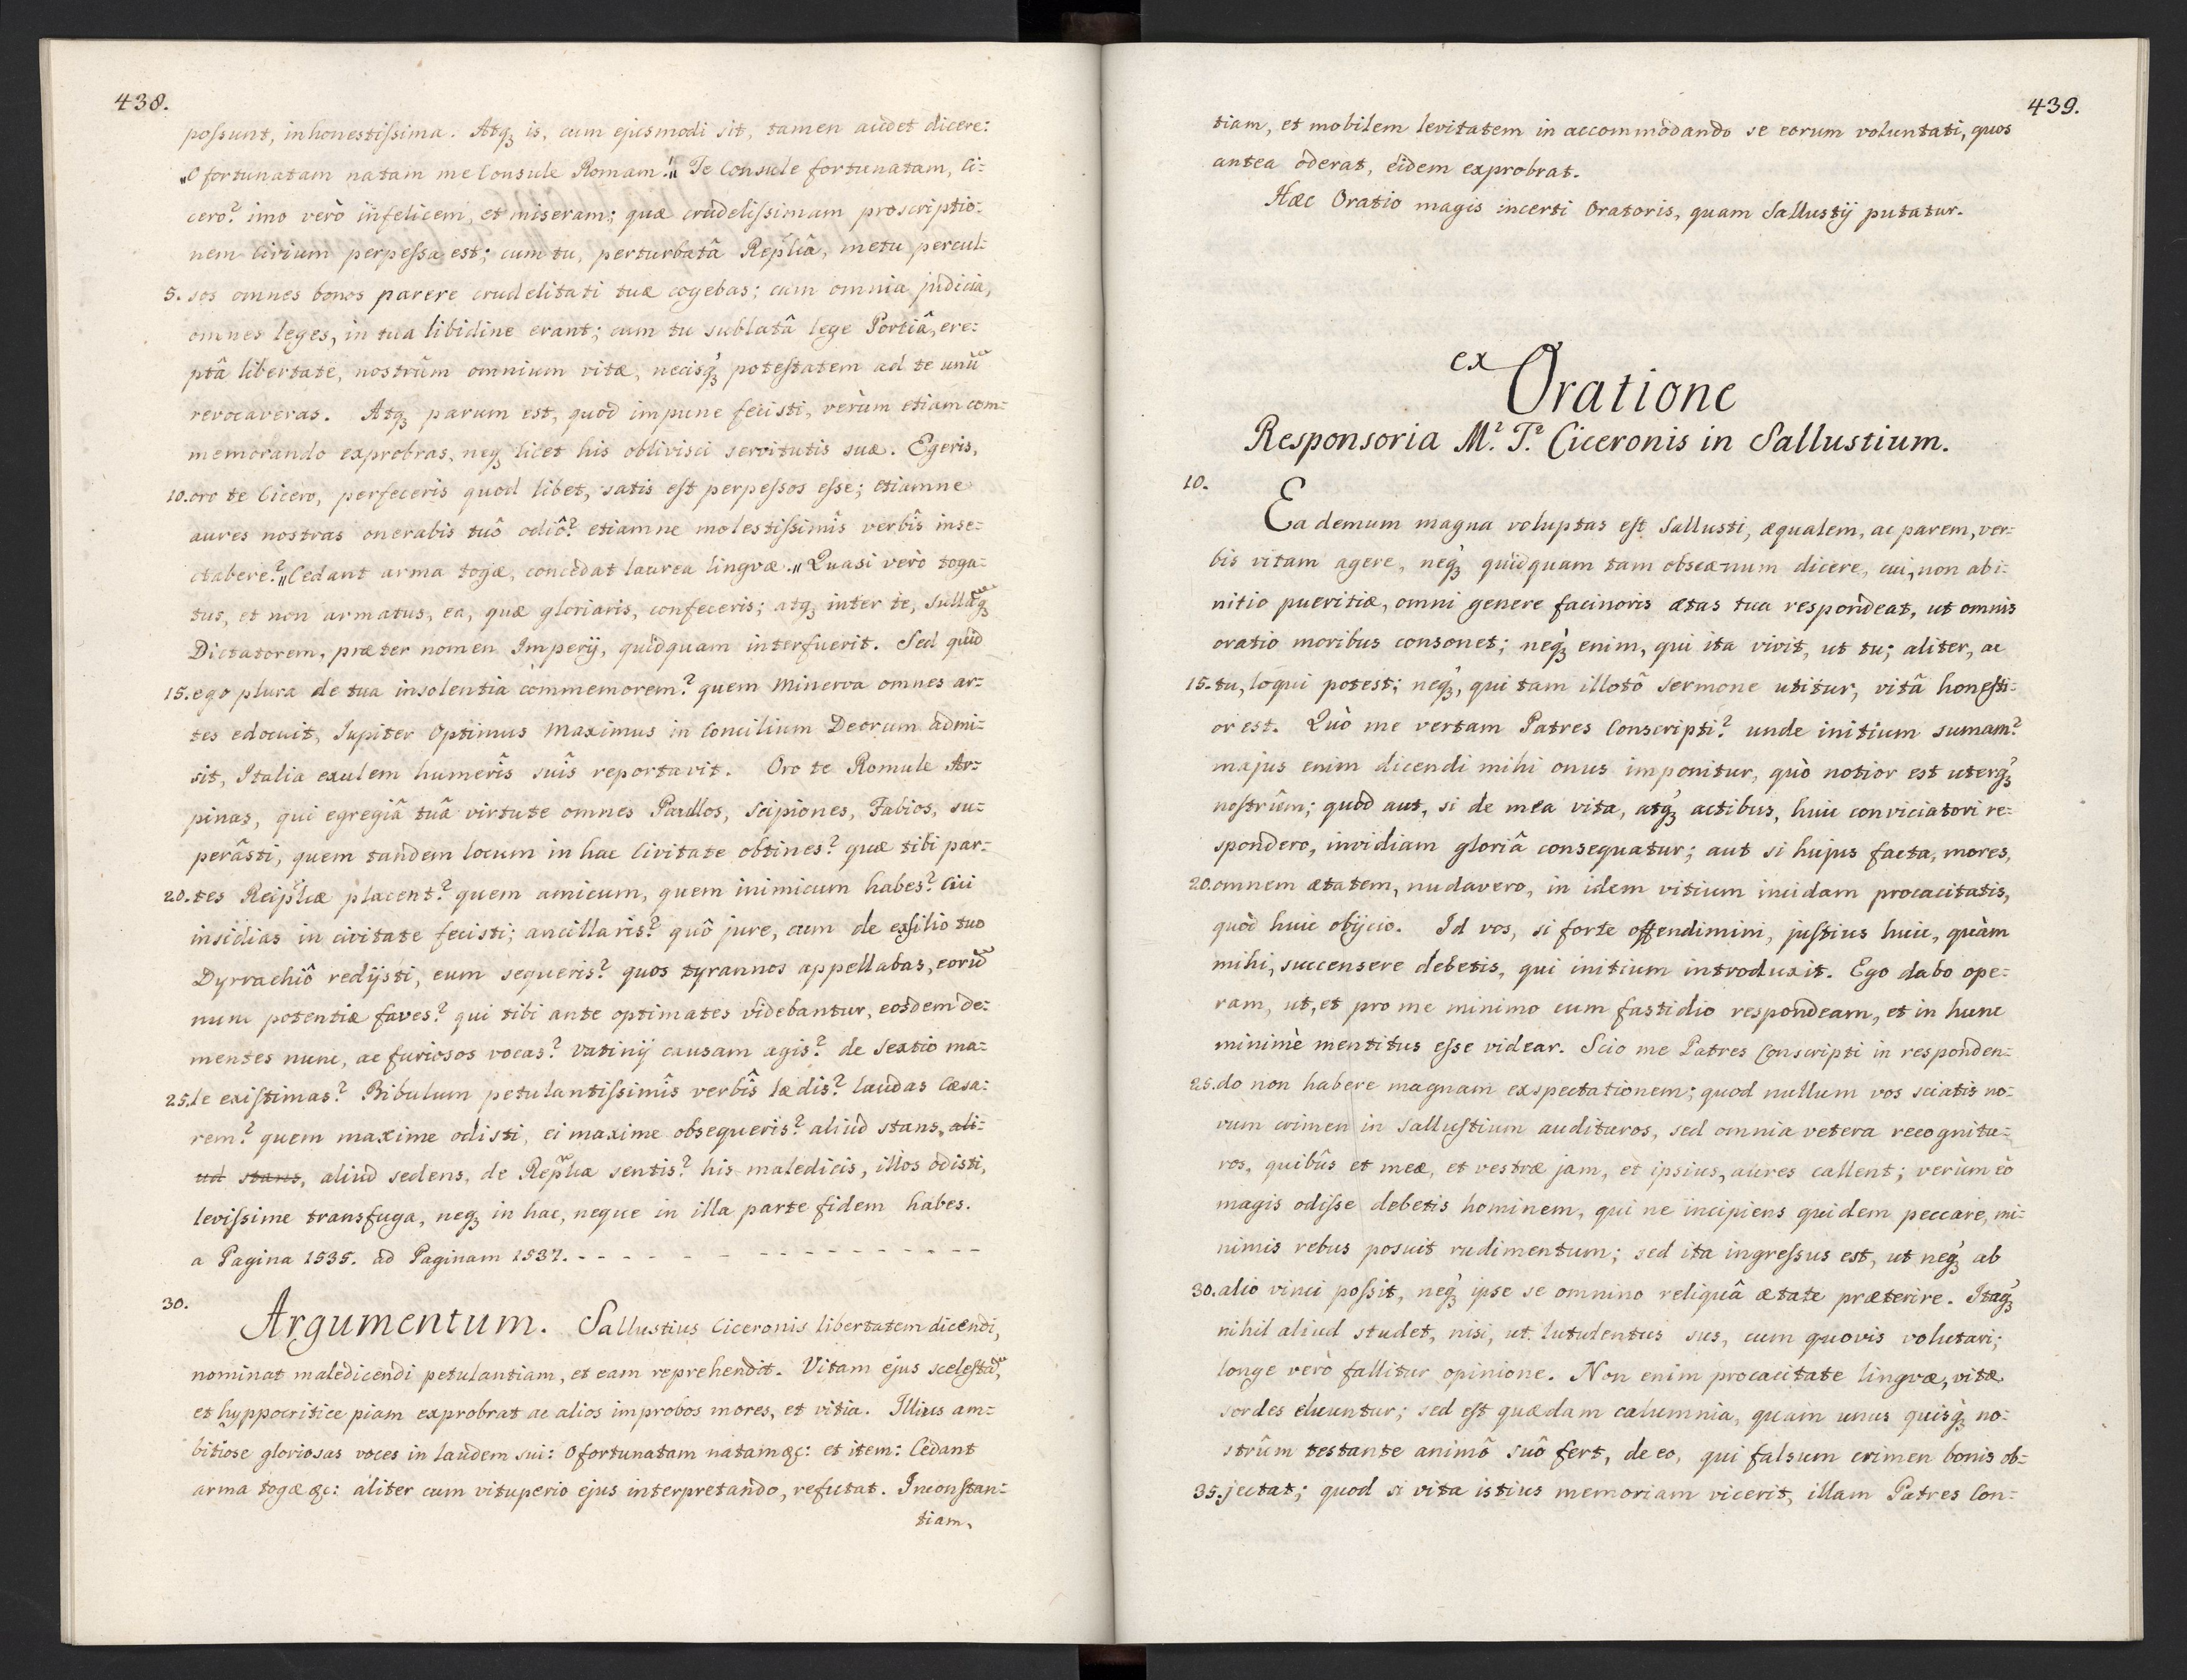 438.
possunt, inhonestissima. Atq3 is, cum ejusmodi sit, tamen audet dicere:
„O fortunatam natam me Consule Romam.„ Te Consule fortunatam, Ci=
cero? imo verò infelicem, et miseram; quæ crudelissimam proscriptio=
nem Civium perpessa est; cum tu, perturbatâ Replicâ, metu percul=
5. sos omnes bonos parere crudelitati tuæ cogebas; cum omnia judicia,
omnes leges, in tua libidine erant; cum tu sublatâ lege Portiâ, ere=
ptâ libertate, nostrûm omnium vitæ, necisq3 potestatem ad te unũ
revocaveras. Atq3 parum est, quod impune fecisti, verùm etiam com=
memorando exprobras, neq3 licet his oblivisci servitutis suæ. Egeris,
10. oro te Cicero, perfeceris quod libet, satis est perpessos esse; etiamne
aures nostras onerabis tuô odiô? etiamne molestissimîs verbîs inse=
ctabere? „Cedant arma togæ, concedat laurea lingvæ.„ Quasi verò toga=
tus, et non armatus, ea, quæ gloriaris, confeceris; atq3 inter te, Sullãq3
Dictatorem, præter nomen Imperij, quidquam interfuerit. Sed quid
15. ego plura de tua insolentia commemorem? quem Minerva omnes ar=
tes edocuit, Jupiter Optimus Maximus in Concilium Deorum admi=
sit, Italia exulem humerîs suîs reportavit. Oro te Romule Ar=
pinas, qui egregiâ tuâ virtute omnes Paullos, Scipiones, Fabios, su=
perâsti, quem tandem locum in hac Civitate obtines? quæ tibi par=
20. tes Reiplicæ placent? quem amicum, quem inimicum habes? Cui
insidias in civitate fecisti; ancillaris? quô jure, cum de exsilio tuo
Dyrrachiô redijsti, eum sequeris? quos tyrannos appellabas, eorũ
nunc potentiæ faves? qui tibi ante optimates videbantur, eosdem de=
mentes nunc, ac furiosos vocas? Vatinij causam agis? de Sextio ma=
25. le existimas? Bibulum petulantissimîs verbîs lædis? laudas Cæsa=
rem? quem maxime odisti, ei maxime obsequeris? aliud stans, ali=
ud stans, aliud sedens, de Replica sentis? his maledicis, illos odisti,
levissime transfuga, neq3 in hac, neque in illa parte fidem habes.
a Pagina 1535. ad Paginam 1537. - - - - - - - - - - - - - - - -
30.
Argumentum. Sallustius Ciceronis libertatem dicendi,
nominat maledicendi petulantiam, et eam reprehendit. Vitam ejus scelestã,
et hyppocritice piam exprobrat ac alios improbos mores, et vitia. Illius am=
bitiose gloriosas voces in laudem sui: O fortunatam natam &c: et item: Cedant
arma togæ &c: aliter cum vituperio ejus interpretando, refutat. Inconstan=
tiam,
439.
tiam, et mobilem levitatem in accommodando se eorum voluntati, quos
antea oderat, eidem exprobrat.
Hæc Oratio magis incerti Oratoris, quam Sallustij putatur.
ex
Oratione
Responsoria M. T. Ciceronis in Sallustium.
10.
Ea demum magna voluptas est Sallusti, æqualem, ac parem, ver=
bis vitam agere, neq3 quidquam tam obscænum dicere, cui, non ab i=
nitio pueritiæ, omni genere facinoris ætas tua respondeat, ut omnis
oratio moribus consonet; neq3 enim, qui ita vivit, ut tu; aliter, ac
15. tu, loqui potest; neq3, qui tam illotô sermone utitur, vitâ honesti=
or est. Quò me vertam Patres Conscripti? unde initium sumam?
majus enim dicendi mihi onus imponitur, quò notior est uterq3
nostrûm; quòd aut, si de mea vita, atq3 actibus, huic conviciatori re=
spondero, invidiam gloriâ consequatur; aut si hujus facta, mores,
20. omnem ætatem, nudavero, in idem vitium incidam procacitatis,
quòd huic objicio. Id vos, si forte offendimini, justius huic, quàm
mihi, succensere debetis, qui initium introduxit. Ego dabo ope=
ram, ut, et pro me minimo cum fastidio respondeam, et in hunc
minimè mentitus esse videar. Scio me Patres Conscripti in responden=
25. do non habere magnam exspectationem; quod nullum vos sciatis no=
vum crimen in Sallustium audituros, sed omnia vetera recognitu=
ros, quibûs et meæ, et vestræ jam, et ipsius, aures callent; verùm eò
magis odisse debetis hominem, qui ne incipiens quidem peccare, mi=
nimis rebus posuit rudimentum; sed ita ingressus est, ut neq3 ab
30. alio vinci possit, neq3 ipse se omnino reliquâ ætate præterire. Itaq3
nihil aliud studet, nisi, ut lutulentus sus, cum quovis volutari;
longe verò fallitur opinione. Non enim procacitate lingvæ, vitæ
sordes eluuntur; sed est quædam calumnia, quam unus quisq3 no=
strûm testante animô suô fert, de eo, qui falsum crimen bonis ob=
35. jectat; quod si vita istius memoriam vicerit, illam Patres Con=